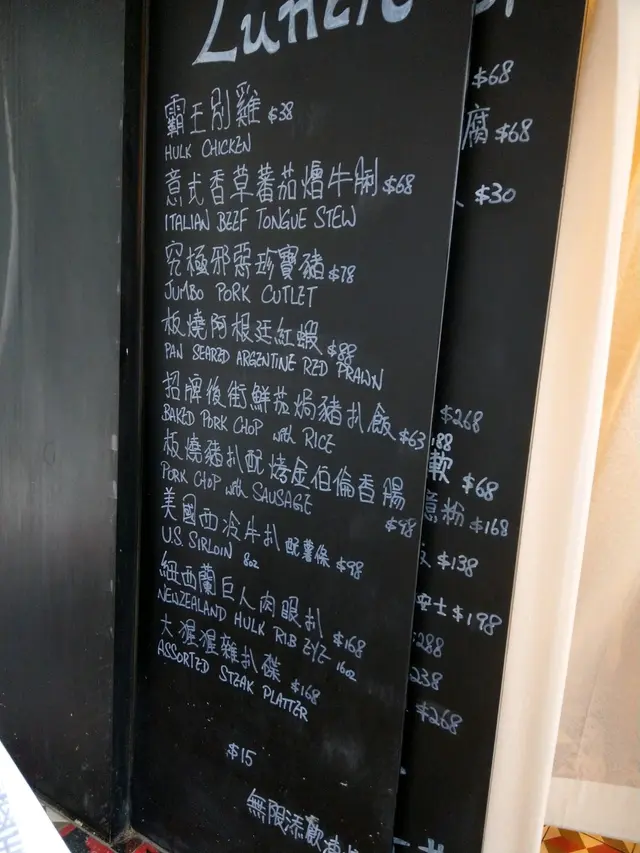 Lunch
霸王別雞 $38
HULK CHICKEN
意式香草蕃茄燴牛脷 $68
ITALIAN BEEF TONGUE STEW
究極邪惡珍寶豬 $78
JUMBO PORK CUTLET
板燒阿根廷紅蝦 $88
PAN SEARED ARGENTINE RED PRAWN
招牌後街鮮茄焗豬扒飯 $63
BAKED PORK CHOP with RICE
板燒豬扒配烤金伯倫香腸
PORK CHOP with SAUSAGE $98
美國西冷牛扒配薯條 $98
US SIRLOIN 8oz
紐西蘭巨人肉眼扒 $168
NEWZEALAND HULK RIB EYE 16oz
大猩猩雜扒碟 $168
ASSORTED STEAK PLATTER
$15
無限添歡
$68
腐 $68
$30
$268
88
軟 $68
意粉 $168
$138
安士 $198
288
238
$268